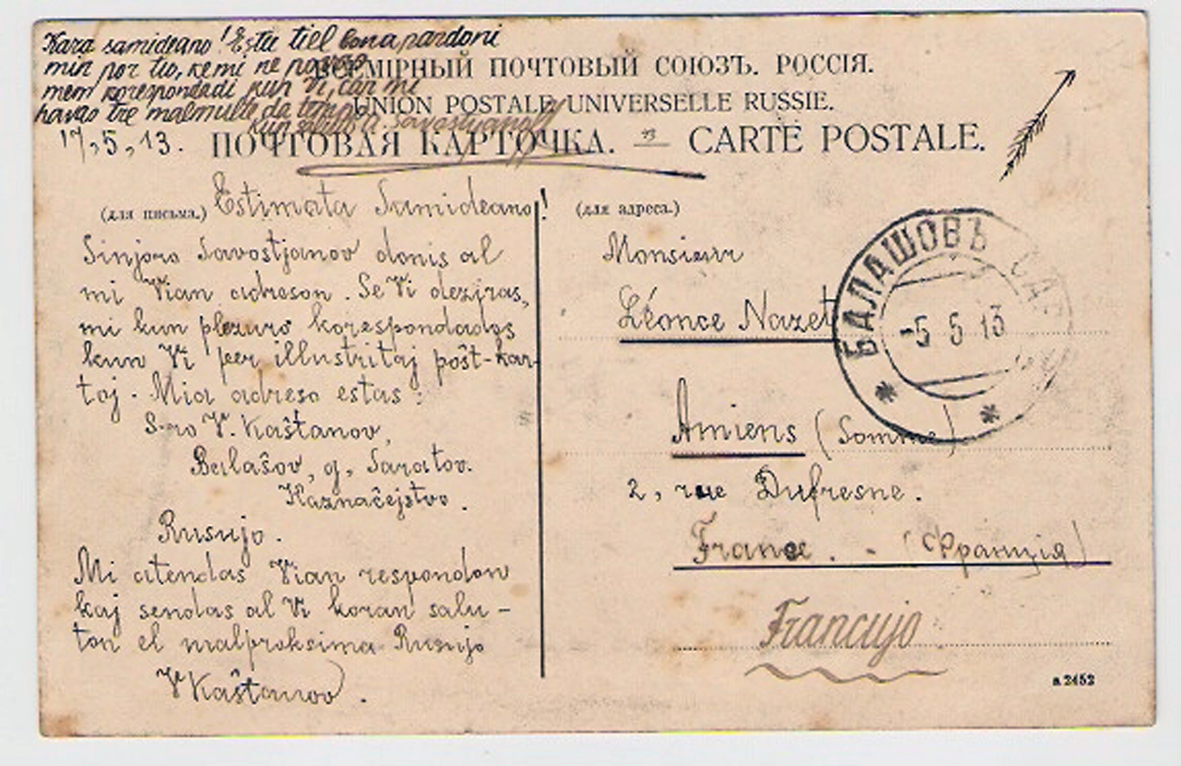 Kara samideano! Estu tiel bona pardoni
min por tio, ke mi ne povas
mem korespondadi kun Vi, ĉar mi
havas tre malmulte da tempo
kun saluto Savostjanoff
17,5,13.
ВСЕМІРНЫЙ ПОЧТОВЫЙ СОЮЗЪ. РОССІЯ.
UNION POSTALE UNIVERSELLE RUSSIE.
ПОЧТОВАЯ КАРТОЧКА. CARTE POSTALE.
(для письма.)
Estimata Samideano!
Sinjoro Savostjanov donis al
mi Vian adreson. Se Vi deziras,
mi kun plezuro korespondados
kun Vi per illustritaj poŝt-kar-
toj. Mia adreso estas:
S-ro V. Kaŝtanov,
Balaŝov, g. Saratov.
Kaznaĉejstvo.
Rusujo.
Mi atendas Vian respondon
kaj sendas al Vi koran salu-
ton el malproksima Rusujo
V Kaŝtanov.
(для адреса.)
Monsieur
Léonce Nazet
Amiens (Somme)
2, rue Dufresne.
France. - (Франція)
Francujo
БАЛАШОВЪ САР
-5 5 13
a 2452